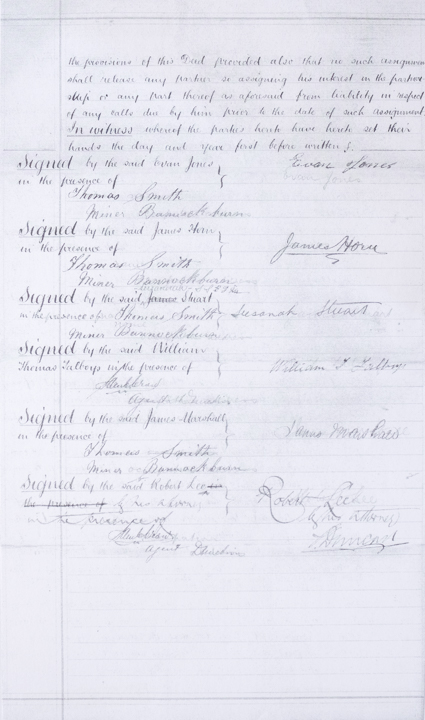 the provisions of this Deed provided also that no such assignment
shall release any partner so assigning his interest in the partner
ship or any part thereof as aforesaid from liability in respect
of any calls due by him prior to the date of such assignment
In witness whereof the parties hereto have hereto set their
hands the day and year first before written
Signed by the said Evan Jones
in the presence of
Thomas Smith
Miner Bannockburn
Evan Jones
Signed by the said James Horn
in the presence of
Thomas Smith
Miner Bannockburn
James Horn
Signed by the said James Stuart
in the presence of Thomas Smith
Miner Bannockburn
Susanah Stuart
Signed by the said William
Thomas Talboys in the presence of
Agent
William T Talboys
Signed by the said James Marshall
in the presence of
Thomas Smith
Miner Bannockburn
James Marshall
Signed by the said Robert
the presence of by his attorney
in the presence of
Agent
Robert
by his attorney